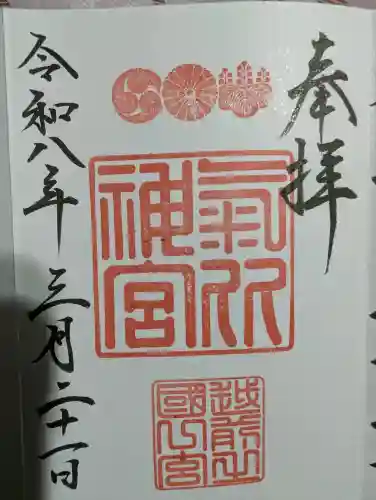 奉拝
氣比
神宮
越前之
國一宮
令和八年 三月二十一日